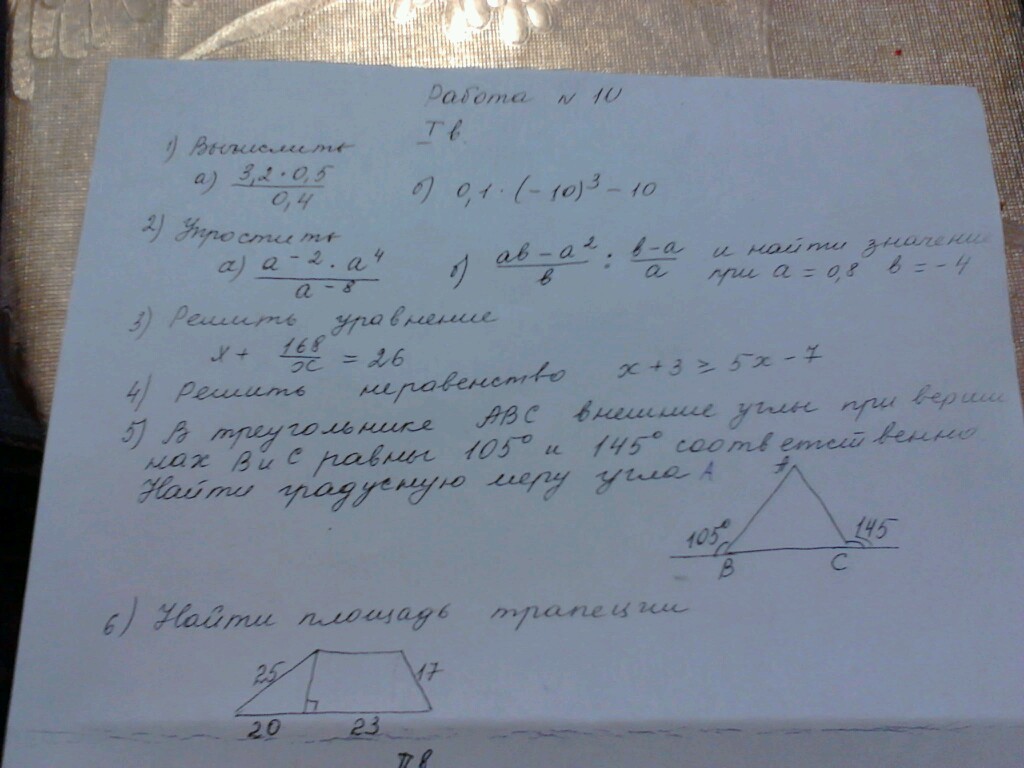 Работа № 10
I в.
1) Вычислить
а) \frac{3,2 · 0,5}{0,4} б) 0,1 · (-10)³ - 10
2) Упростить
а) \frac{a⁻² · a⁴}{a⁻⁸} б) \frac{ab - a²}{b} : \frac{b - a}{a} и найти значение
при a = 0,8 b = -4
3) Решить уравнение
x + \frac{168}{x} = 26
4) Решить неравенство x + 3 ≥ 5x - 7
5) В треугольнике ABC внешние углы при верши
нах B и C равны 105° и 145° соответственно
Найти градусную меру угла A
A
105° 145
B C
6) Найти площадь трапеции
25 17
20 23
II в